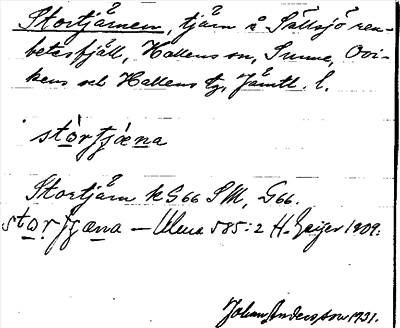 Stortjärnen, tjärn å Sällsjö ren-
betesfjäll, Hallens sn, Sunne, Ovi-
kens och Hallens tg, Jämtl. l.
stòrtjæ̀na
Stortjärn kG66 SM, G66.
stòrtjæna – Ulma 585:2 H. Geijer 1909.
Johan Andersson 1931.